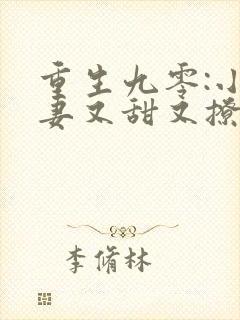 重生九零:小
妻又甜又撩
李脩林